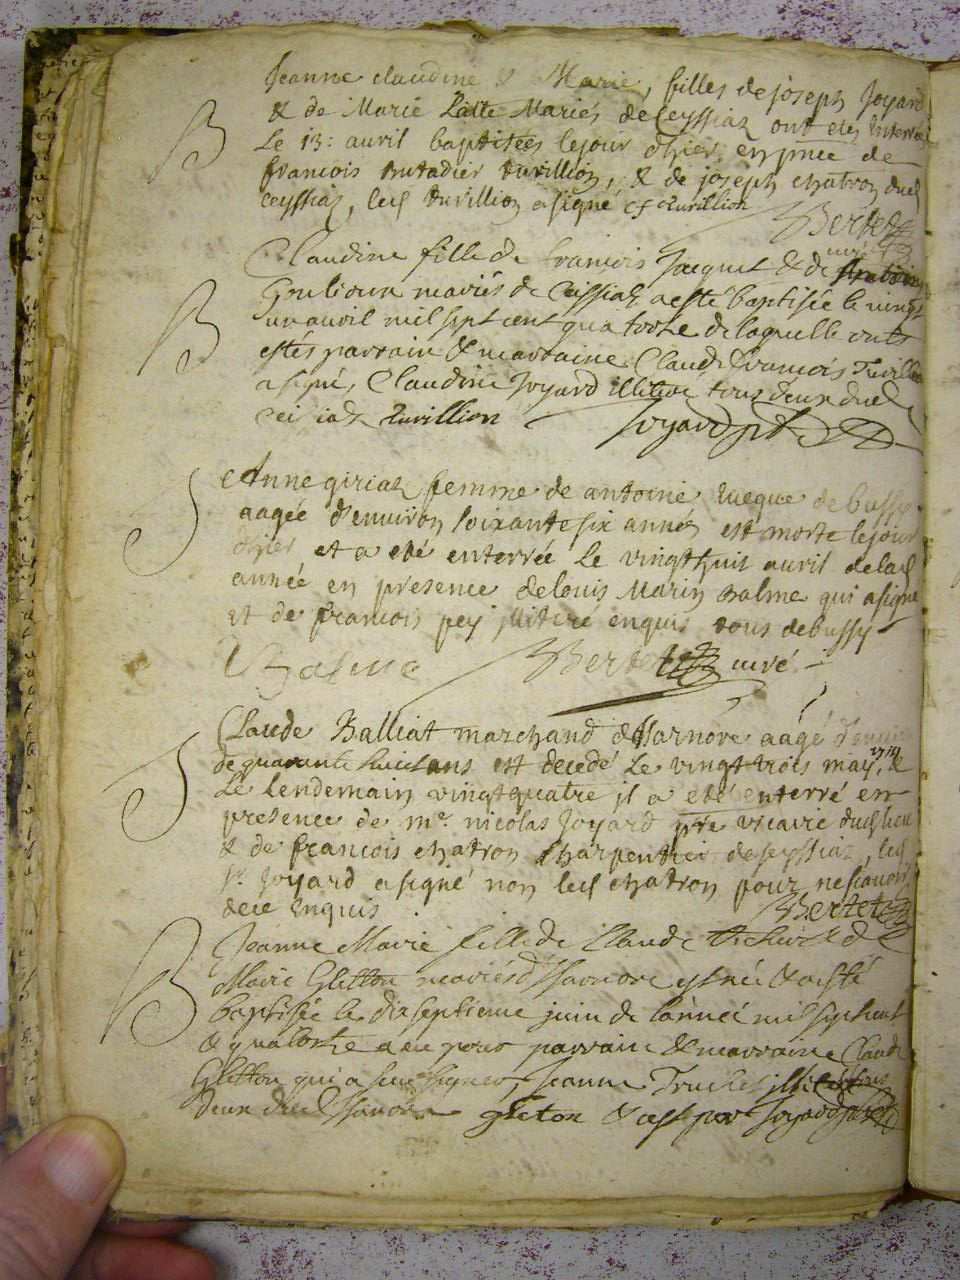 Jeanne claudine & Marie, filles de joseph Joyard
B & de Marie Latte Mariés de Ceyssiaz ont etés
Le 13: avril baptisées lejour d'hier, en pnce de
francois du villion, & de joseph chatron dud
Ceyssiaz, led Duvillion a signé cf Duvillion
Bertet
curé
Claudine fille de francois Jacquet & de
B mariés de Ceissiaz a esté baptisée le vingt
un avril mil sept cent quatorze de laquelle onts
estes parrain & marraine Claude francois
a signé, Claudine Joyard illiteree tous deux dud
Ceissiaz Duvillion Joyard ptre
S Anne giriaz femme de antoine de bussy
aagée d'environ soixante six années est morte le jour
d'hier et a eté enterrée Le vingthuit avril de lad
année en presence de louis Marin Balme qui a signé
et de francois pey illiteré enquis tous de bussy
Balme Bertet curé
S Claude Balliat marchand d'Isarnore aagé d'environ
de quarante huict ans est decedé Le vingt trois may, 1714 &
Le Lendemain vingt quatre il a eté enterré en
presence de mr. nicolas Joyard ptre vicaire dud lieu
& de francois chatron charpentier de seyssiaz, led
sr. Joyard a signé non led chatron pour ne scavoir
de ce Enquis Bertet
B Jeanne Marie fille de Claude & de
Marie Gletton mariés d'Isarnore est née & a esté
baptisée le dixseptieme juin de l'année mil sept cent
& quatorze a eu pour parrain & marraine Claude
Gletton qui a sceu signer, Jeanne illiteree tous
deux dud Isarnore gleton & est par Joyard ptre